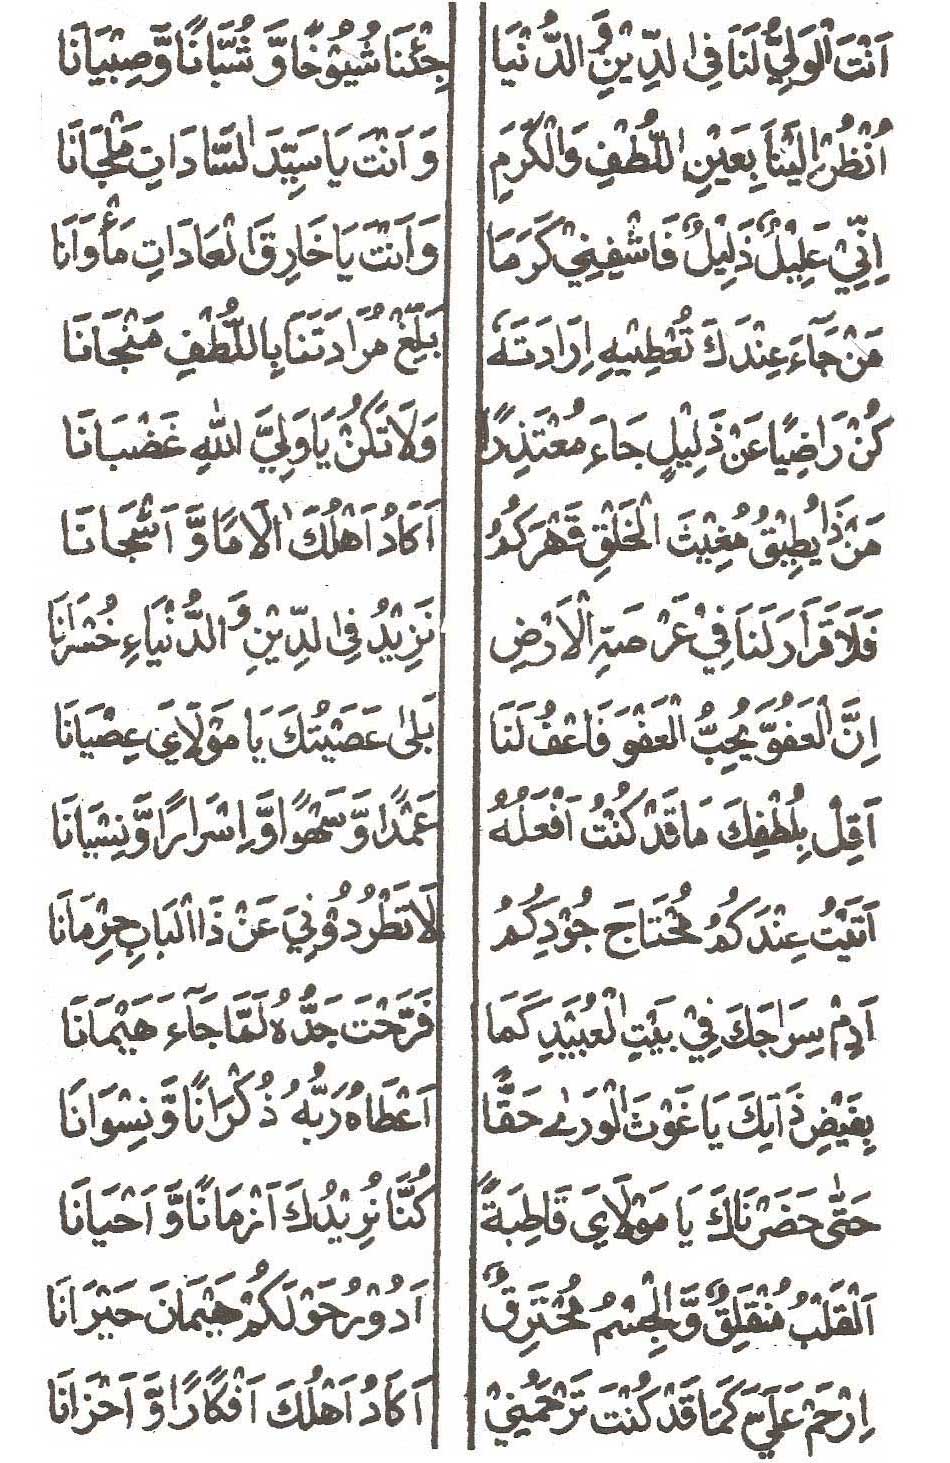 اَنْتَ الْوَلِيُّ لَنَا فِى الدِّيْنِ وَالدُّنْيَا جِئْنَا شُيُوْخًا وَّ شُبَّانًا وَّ صِبْيَانَا
اُنْظُرْ اِلَيْنَا بِعَيْنِ اللُّطْفِ وَالْكَرَمِ وَ اَنْتَ يَا سَيِّدَ السَّادَاتِ مَلْجَانَا
اِنِّيْ عَلِيْلٌ ذَلِيْلٌ فَاشْفِنِيْ كَرَمَا وَ اَنْتَ يَا خَارِقَ الْعَادَاتِ مَأْوَانَا
مَنْ جَآءَ عِنْدَكَ تُعْطِيْهِ اِرَادَتَهٗ بَلِّغْ مُرَادَتَنَا بِاللُّطْفِ مَنْجَانَا
كُنْ رَاضِيًا عَنْ ذَلِيْلٍ جَاءَ مُعْتَذِرًا وَلَا تَكُنْ يَا وَلِيَّ اللّٰهِ غَضْبَانَا
مَنْ ذَا يُطِيْقُ مُغِيْثَ الْخَلْقِ قَهْرَكُمُ اَكَادُ اَهْلُكَ اٰلَامًا وَّ اَشْجَانَا
فَلَا قَرَارَ لَنَا فِيْ عَرْصَةِ الْاَرْضِ نَزِيْدُ فِى الدِّيْنِ وَ الدُّنْيَاءِ خُسْرَانَا
اِنَّ الْعَفُوَّ يُحِبُّ الْعَفْوَ فَاعْفُ لَنَا بَلٰى عَصَيْتُكَ يَا مَوْلَايَ عِصْيَانَا
اَقِلْ بِلُطْفِكَ مَا قَدْ كُنْتُ اَفْعَلُهُ عَمْدًا وَّ سَهْوًا وَّ اِسْرَارًا وَّ نِسْيَانَا
اَتَيْتُ عِنْدَكُمُ مُحْتَاجَ جُوْدِكُمُ لَا تَطْرُدُوْنِيَ عَنْ ذَا الْبَابِ حِرْمَانَا
اَدِمْ سِرَاجَكَ فِيْ بَيْتِ الْعُبَيْدِ كَمَا فَرَّحْتَ جَدُّهُ لَمَّا جَآءَ هَيْمَانَا
بِفَيْضِ ذَاتِكَ يَا غَوْثَ الْوَرٰى حَقًّا اَعْطَاهُ رَبُّهُ ذُكْرَانًا وَّ نِسْوَانَا
حَتّٰى حَضَرْنَاكَ يَا مَوْلَايَ قَاطِبَةً كُنَّا نُرِيْدُكَ اَزْمَانًا وَّ اَحْيَانَا
اَلْقَلْبُ مُنْقَلِقٌ وَّ الْجِسْمُ مُحْتَرِقٌ اَدُوْرُ حَوْلَكُمْ هَيْمَانَ حَيْرَانَا
اِرْحَمْ عَلَيَّ كَمَا قَدْ كُنْتَ تَرْحَمُنِيْ اَكَادُ اَهْلُكَ اَفْكَارًا وَّ اَحْزَانَا